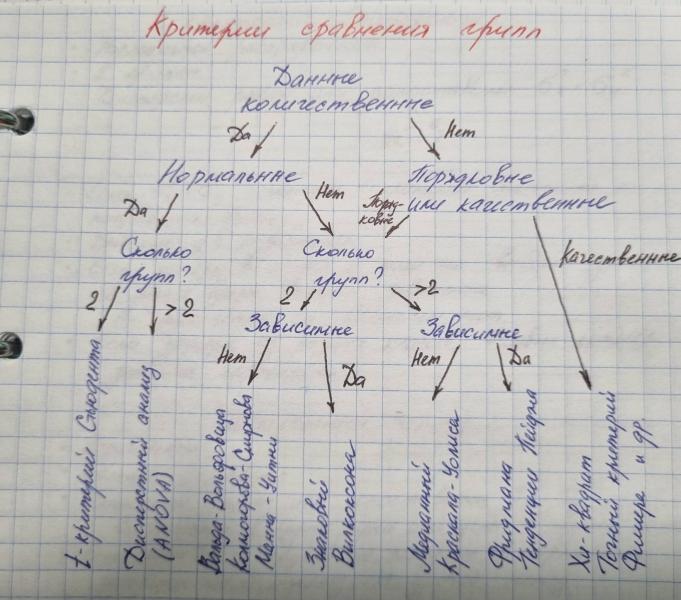 Критерии сравнения групп
Данные
количественные
Да
Нет
Нормальные
Порядковые
или качественные
Да
Нет
Поряд-
ковые
Качественные
Сколько
групп?
Сколько
групп?
2
>2
2
>2
Зависимые
Зависимые
Нет
Да
Нет
Да
t-критерий Стьюдента
Дисперсный анализ
(ANOVA)
Вальда-Вольфовица
Колмогорова-Смирнова
Манна-Уитни
Знаковый
Вилкоксона
Медианный
Краскала-Уолиса
Фридмана
Тенденции Пейджа
Хи-квадрат
Точный критерий
Фишера и др.